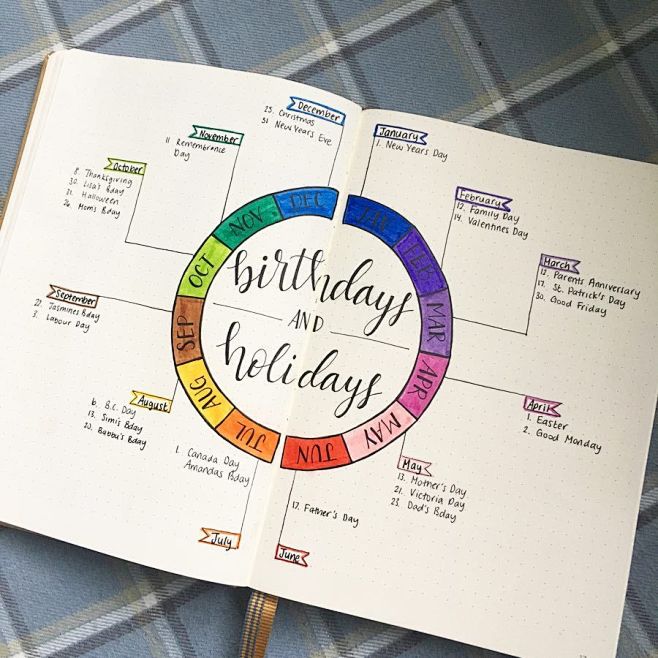 birthdays
AND
holidays
JAN
FEB
MAR
APR
MAY
JUN
JUL
AUG
SEP
OCT
NOV
DEC
January
1. New Years Day
February
12. Family Day
14. Valentines Day
March
12. Parents Anniversary
17. St. Patrick's Day
30. Good Friday
April
1. Easter
2. Good Monday
May
13. Mother's Day
21. Victoria Day
23. Dad's Bday
June
17. Father's Day
July
1. Canada Day
Amandas Bday
August
6. B.C. Day
13. Simi's Bday
20. Babbu's Bday
September
Jasmines Bday
3. Labour Day
October
8. Thanksgiving
30. Lisa's Bday
31. Halloween
26. Mom's Bday
November
11 Remembrance
Day
December
25. Christmas
31. New Years Eve